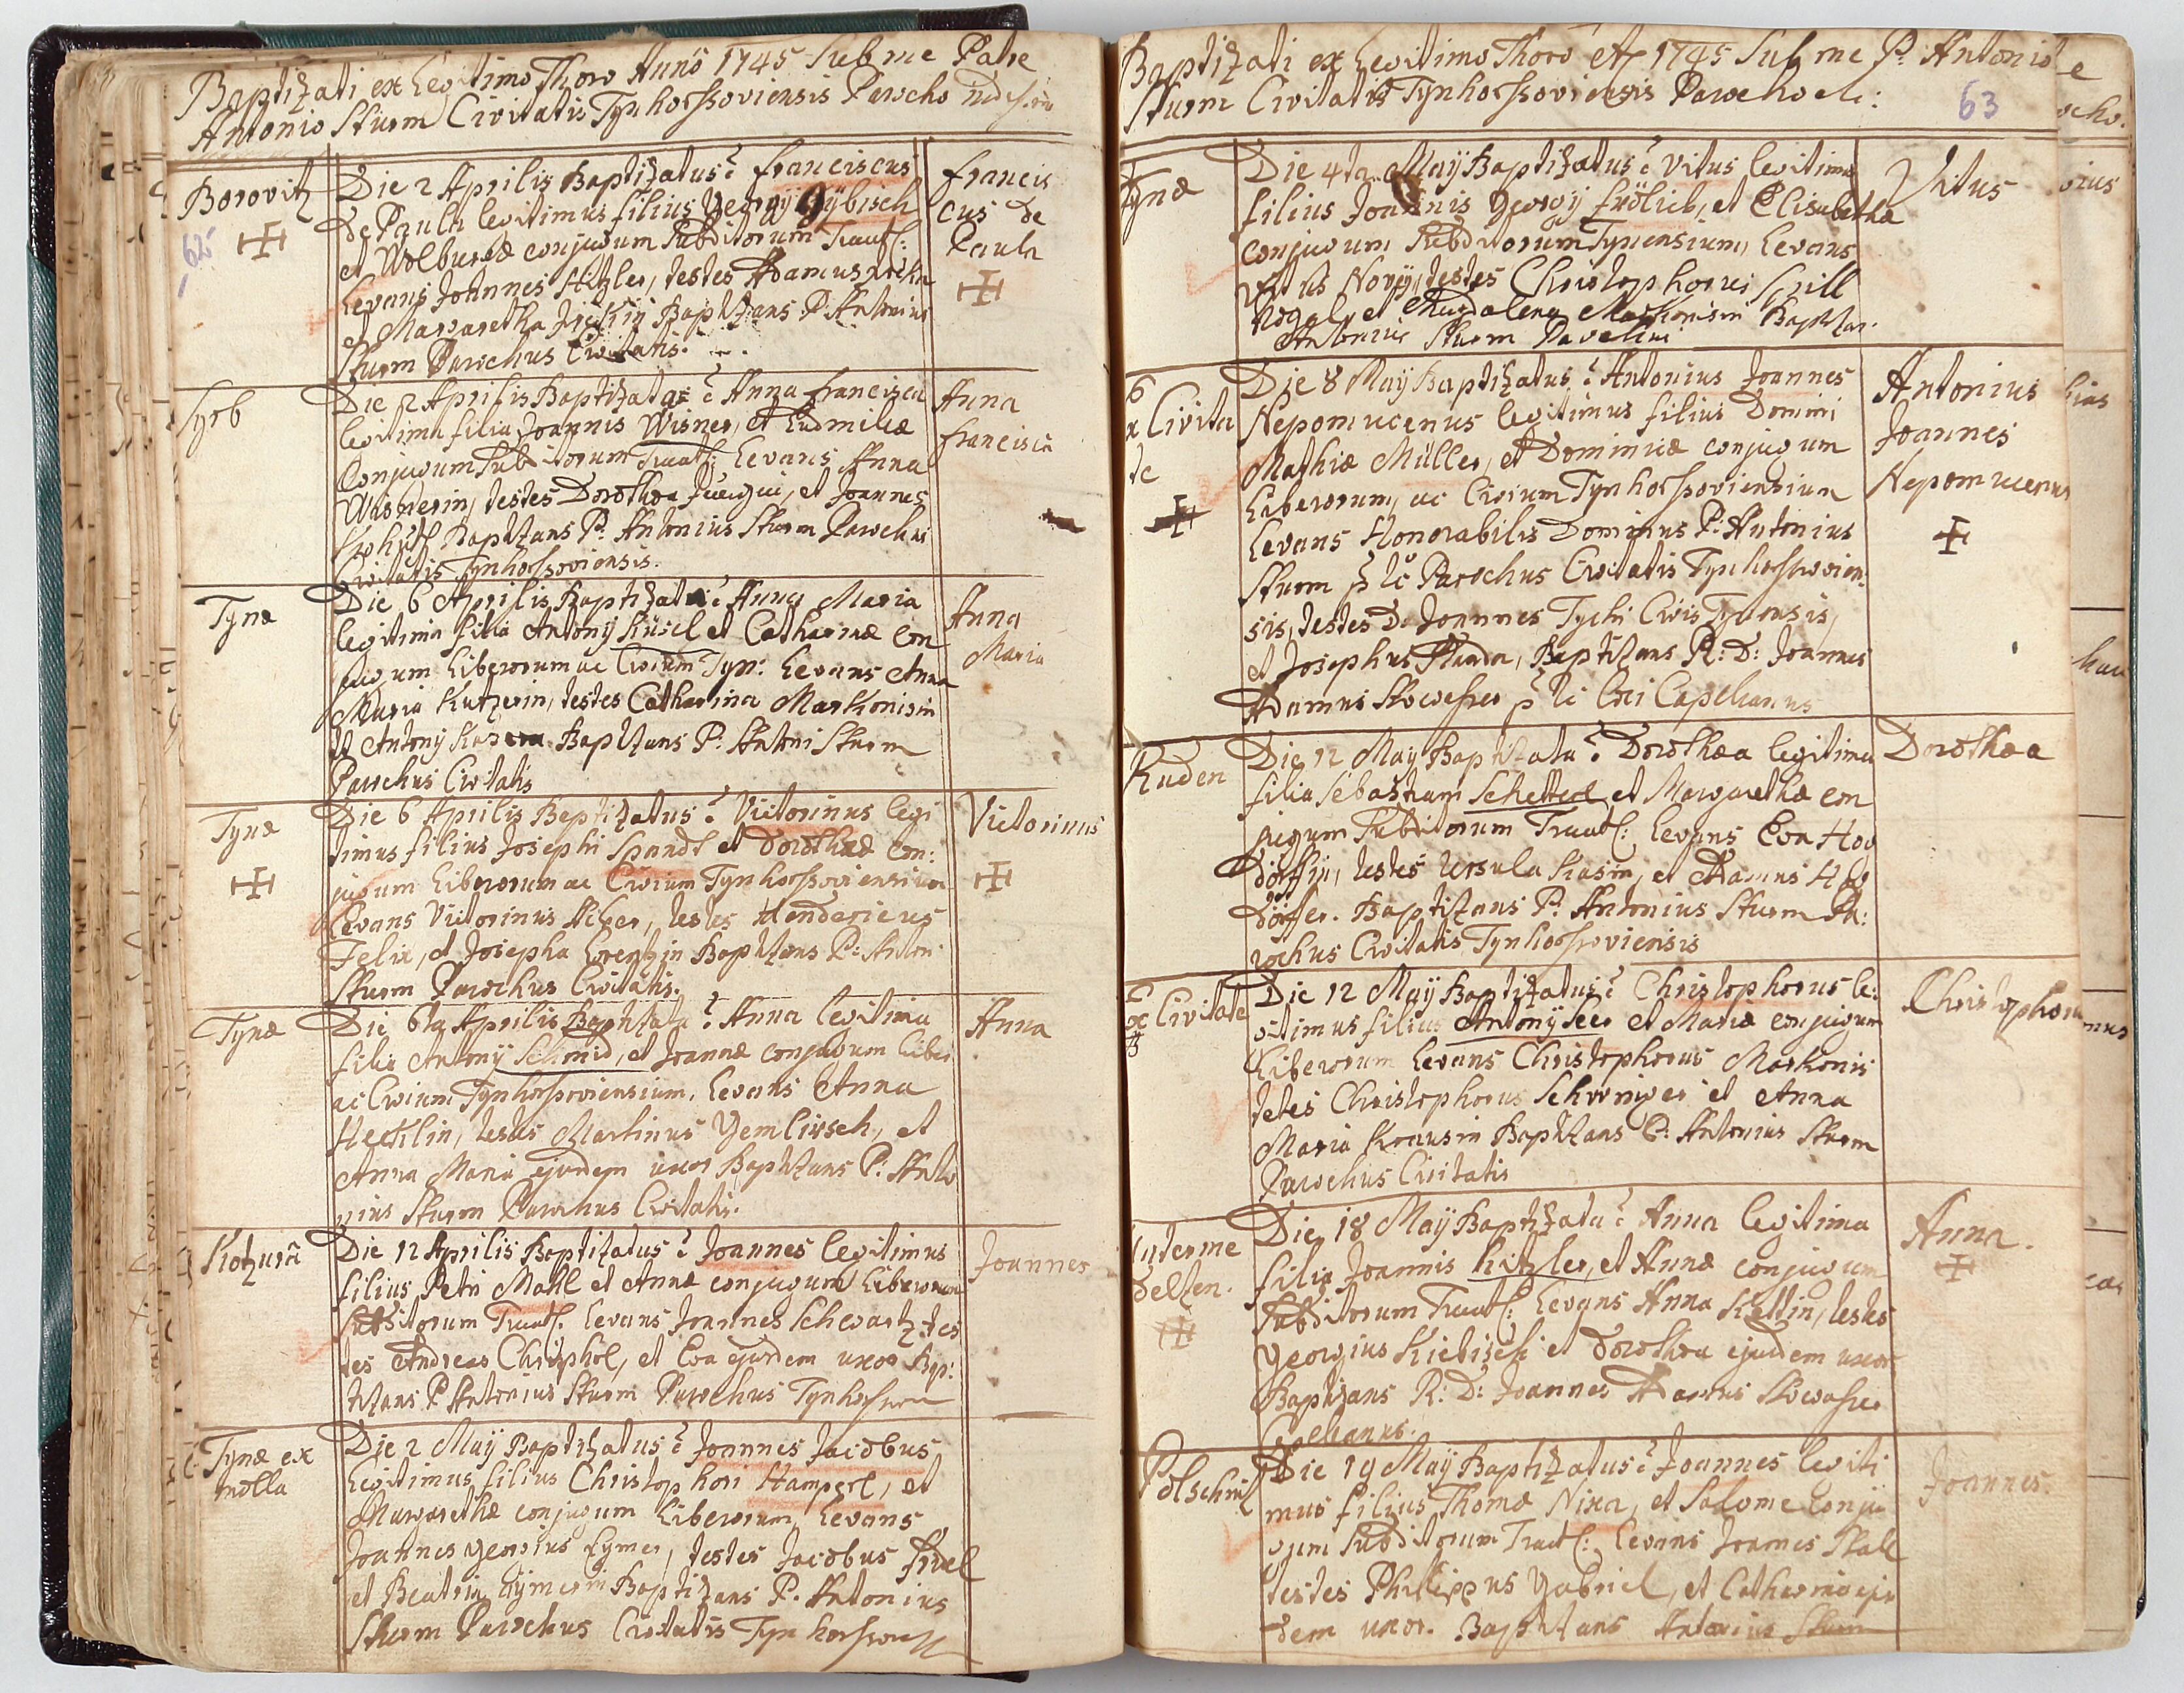 Baptizati ex Legitimo Thoro Anno 1745 Sub me Patre
Antonio Sturm Civitatis Tynhorssoviensis Parocho
Borovitz
62
Die 2 Aprilis Baptizatus ē Franciscus
de Paula legitimus filius Georgy
et Wolburgæ conjugum Subditorum Trautſ:
Levans Johannes Hitzler, testes Adamus
et Margaretha Baptizans P. Antonius
Sturm Parochus Civitatis.
Francis
cus de
Paula
Syrb
Die 2 Aprilis Baptizata ē Anna Francisca
legitima filia Joannis Wisner, et Ludmilæ
Conjugum Subditorum Trautſ: Levans Anna
Wisnerin, testes Dorothea et Joannes
Baptizans P. Antonius Sturm Parochus
Civitatis Tynhorssoviensis.
Anna
Francisca
Tynæ
Die 6 Aprilis Baptizata ē Anna Maria
legitima filia Antony Küsel et Catharinæ con
jugum Liberorum ac Civium Tyn: Levans Anna
Maria Kutzerin, testes Catharina Markonisin
et Antony Baptizans P: Antoni Sturm
Parochus Civitatis
Anna
Maria
Tynæ
Die 6 Aprilis Baptizatus ē Victorinus legi
timus filius Josephi Spandl et Dorotheæ con:
jugum Liberorum ac Civium Tynhorssoviensium
Levans Victorinus testes Hendericus
Felix, et Josepha Lorentzin Baptizans P: Anton
Sturm Parochus Civitatis.
Victorinus
Tynæ
Die 6ta Aprilis Baptizata ē Anna legitima
filia Antony Schmid, et Joannæ conjugum Liber
ac Civium Tynhorssoviensium, Levans Anna
Hecklin, testes Martinus Gemlirsch, et
Anna Maria ejusdem uxor Baptizans P: Anto
nius Sturm Parochus Civitatis.
Anna
Kotzurā
Die 12 Aprilis Baptizatus ē Joannes legitimus
filius Petri Mahl et Annæ conjugum Liberorum
Subditorum Trautſ. Levans Joannes Schwartz, tes
tes Andreas Christphol, et Eva ejusdem uxor Bap:
tizans P Antonius Sturm Parochus Tynhorssov
Joannes
Tynæ ex
molla
Die 2 May Baptizatus ē Joannes Jacobus
legitimus filius Christophori Hamperl, et
Margarethæ conjugum Liberorum, Levans
Joannes Georgius Eymer, testes Jacobus
et Beatrix Aymerin Baptizans P. Antonius
Sturm Parochus Civitatis Tynhorssov
Baptizati ex Legitimo Thoro A 1745 Sub me P. Antonio
Sturm Civitatis Tynhorssoviensis Parocho etc:
63
Tynæ
Die 4ta May Baptizatus ē Vitus legitimus
filius Joannis Georgy Frölich, et Elisabethæ
conjugum Subditorum Tynensium, Levans
Vitus Novy, testes Christophorus Grill
et Magdalena Markonisin Baptizans
Antonius Sturm
Vitus
ex Civita
te
Die 8 May Baptizatus ē Antonius Joannes
Nepomucenus legitimus filius Domini
Mathiæ Müller, et Dominicæ conjugum
Liberorum, ac Civium Tynhorssoviensium
Levans Honorabilis Dominus P: Antonius
Sturm p. tc Parochus Civitatis Tynhorssovien:
sis, testes D. Joannes Tychi Civis Tynensis,
et Josephus Baptizans R: D: Joannes
Adamus p. tc Loci Capellanus
Antonius
Joannes
Nepomucenus
Ruden
Die 12 May Baptizata ē Dorothæa legitima
filia Sebastiani Schetterl et Margarethæ con
jugum Subditorum Trautſ: Levans Eva Hog
dörffin, testes Ursula Kasin, et Adamus Hog
dörffer. Baptizans P. Antonius Sturm Pa:
rochus Civitatis Tynhorssoviensis
Dorothæa
ex Civitate
Die 12 May Baptizatus ē Christophorus le:
gitimus filius Antony Seer et Mariæ conjugum
Liberorum Levans Christophorus Markonis
testes Christophorus Schroniger et Anna
Maria Krausin Baptizans P. Antonius Sturm
Parochus Civitatis
Christophorus
Unterme
delzen.
Die 18 May Baptizata ē Anna legitima
filia Joannis Hitzler, et Annæ conjugum
Subditorum Trautſ: Levans Anna Kellin, testes
Georgius Kiebisch et Dorothea ejusdem uxor
Baptizans R: D: Joannes Adamus
Capellanus.
Anna.
Potschin
Die 19 May Baptizatus ē Joannes legiti
mus filius Thomæ Nixa, et Salome conju
gum Subditorum Trautſ: Levans Joannes
testes Philippus Gabriel, et Catharina eju
sdem uxor. Baptizans Antonius Sturm
Joannes.